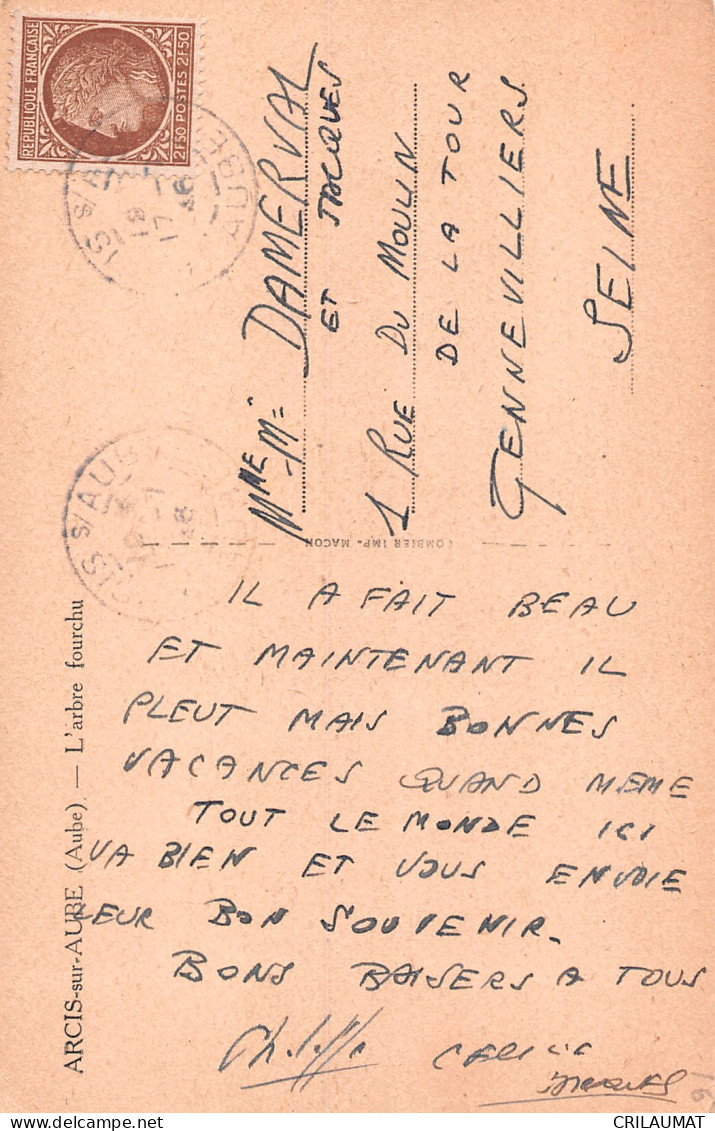 REPUBLIQUE FRANÇAISE
2F50 POSTES 2F50
MME M=
DAMERVAL
ET JACQUES
1 RUE DU MOULIN
DE LA TOUR
GENNEVILLIERS
SEINE
COMBIER IMP. MACON
ARCIS-sur-AUBE (Aube). — L'arbre fourchu
IL A FAIT BEAU
ET MAINTENANT IL
PLEUT MAIS BONNES
VACANCES QUAND MEME
TOUT LE MONDE ICI
VA BIEN ET VOUS ENVOIE
LEUR BON SOUVENIR.
BONS BAISERS A TOUS
CRILAUMAT